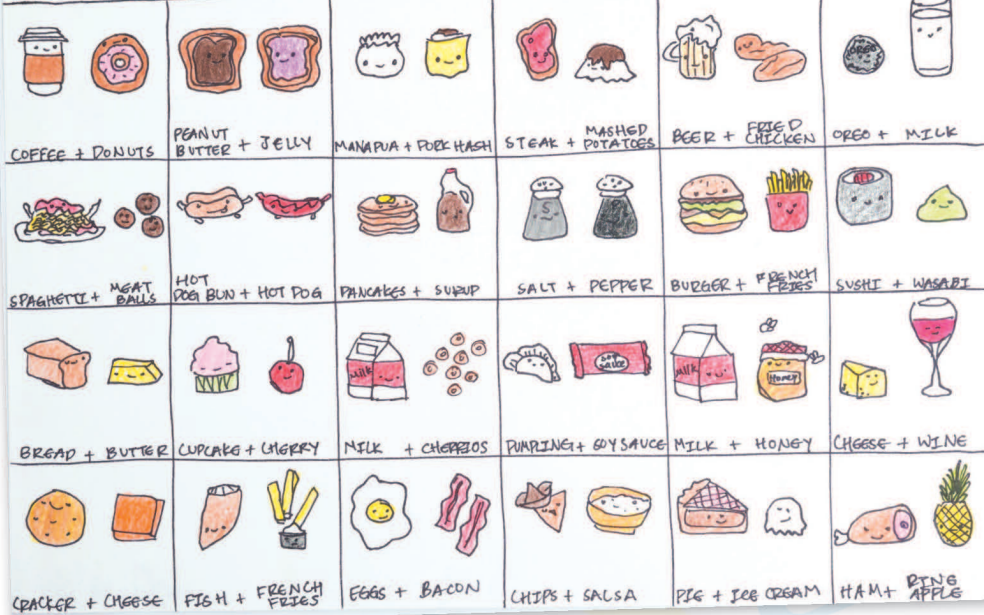 OREO
COFFEE + DONUTS
PEANUT
BUTTER + JELLY
MANAPUA + PORK HASH
STEAK + MASHED
POTATOES
BEER + FRIED
CHICKEN
OREO + MILK
S
P
SPAGHETTI + MEAT
BALLS
HOT
DOG BUN + HOT DOG
PANCAKES + SYRUP
SALT + PEPPER
BURGER + FRENCH
FRIES
SUSHI + WASABI
Milk
SOY
SAUCE
Milk
Honey
BREAD + BUTTER
CUPCAKE + CHERRY
MILK + CHERRIOS
DUMPLING + SOY SAUCE
MILK + HONEY
CHEESE + WINE
CRACKER + CHEESE
FISH + FRENCH
FRIES
EGGS + BACON
CHIPS + SALSA
PIE + ICE CREAM
HAM + PINE
APPLE